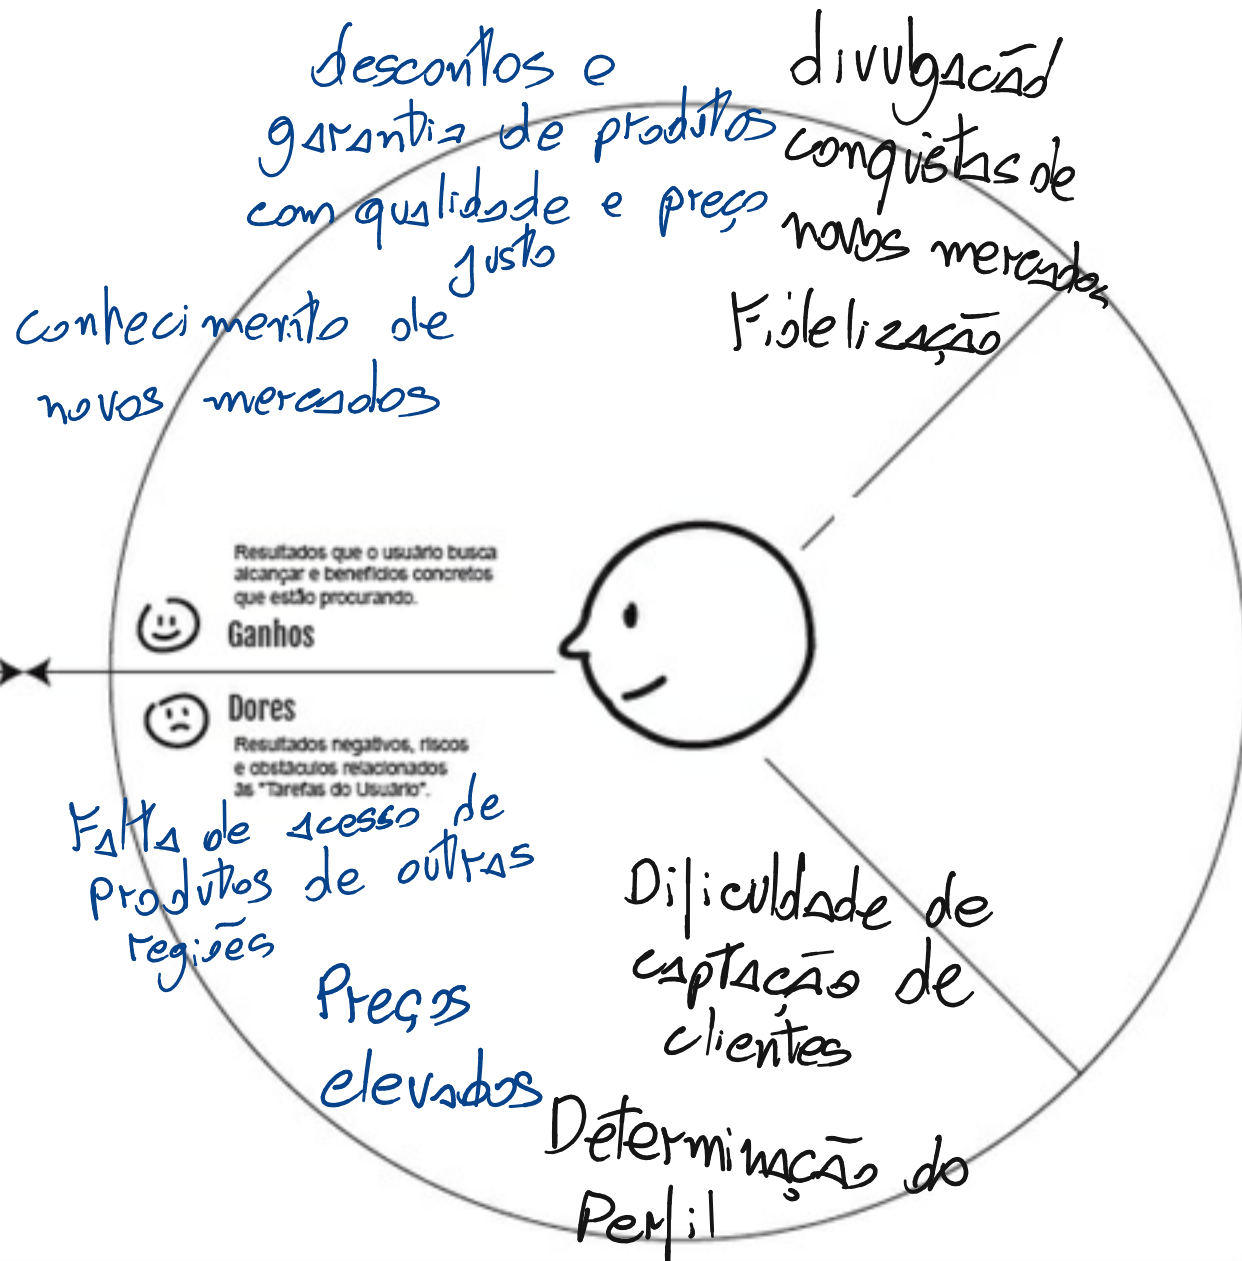 descontos e
garantia de produtos
com qualidade e preço
justo
conhecimento de
novos mercados
divulgação
conquistas de
novos mercados
Fidelização
Resultados que o usuário busca
alcançar e benefícios concretos
que estão procurando.
Ganhos
Dores
Resultados negativos, riscos
e obstáculos relacionados
às "Tarefas do Usuário".
Falta de acesso de
produtos de outras
regiões
Preços
elevados
Dificuldade de
captação de
clientes
Determinação do
Perfil